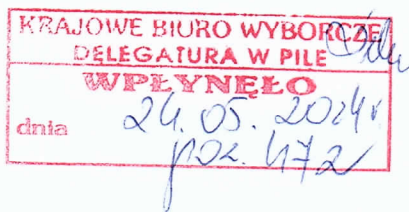 KRAJOWE BIURO WYBORCZE
DELEGATURA W PILE
WPŁYNĘŁO
dnia 24. 05. 2024r
poz. 472